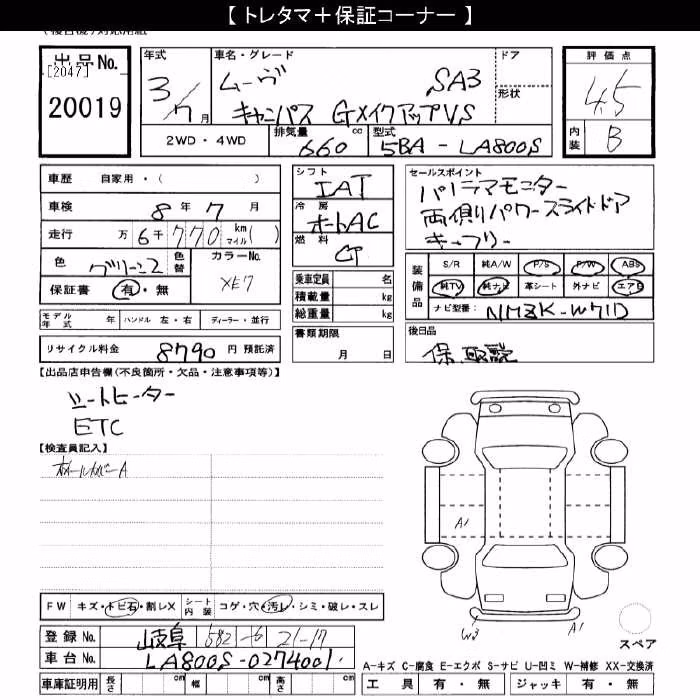 【 トレタマ＋保証コーナー 】
出品No.
[2047]
20019
年式
3/7月
車名・グレード
ムーヴ SA3
キャンバス GメイクアップVS
ドア
形状
評価点
4.5
内装 B
2WD・4WD
排気量 660 cc
型式 5BA - LA800S
車歴 自家用・( )
車検 8年7月
走行 万6千770 km マイル( )
色 グリーン2 色替 カラーNo. XE7
保証書 有・無
モデル年式 年 ハンドル 左・右 ディーラー・並行
リサイクル料金 8790 円 預託済
シフト IAT
冷房 オートAC
燃料
乗車定員 名
積載量 kg
総重量 kg
書類期限
月 日
セールスポイント
パノラマモニター
両側パワースライドドア
キーフリー
装備品
S/R 純A/W P/S P/W ABS
純TV 純ナビ 革シート 外ナビ エアB
ナビ型番: NMZK-W71D
後日品
保 取説
【出品店申告欄(不良箇所・欠品・注意事項等)】
シートヒーター
ETC
【検査員記入】
ホイールカバーA
A1
W3
A1
スペア
FW キズ・トビ石・割レX シート内装 コゲ・穴・汚レ・シミ・破レ・スレ
登録No. 岐阜 582 21-17
車台No. LA800S-0274001
車庫証明用 長さ cm 幅 cm 高さ cm
A-キズ C-腐食 E-エクボ S-サビ U-凹ミ W-補修 XX-交換済
工具 有・無 ジャッキ 有・無